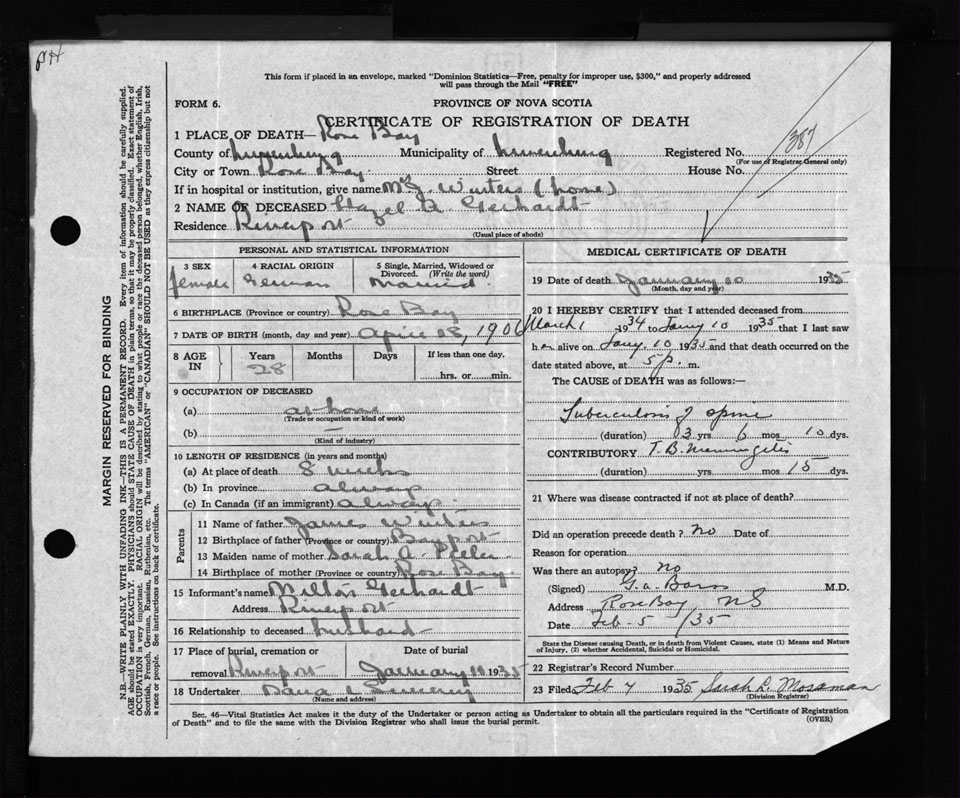 PH
This form if placed in an envelope, marked "Dominion Statistics—Free, penalty for improper use, $300," and properly addressed
will pass through the Mail "FREE"
FORM 6. PROVINCE OF NOVA SCOTIA
CERTIFICATE OF REGISTRATION OF DEATH
1 PLACE OF DEATH— Rose Bay
County of Lunenburg Municipality of Lunenburg Registered No. 387
(For use of Registrar General only)
City or Town Rose Bay Street House No.
If in hospital or institution, give name Winters (home)
2 NAME OF DECEASED Hazel A Gerhardt
Residence Riverport
(Usual place of abode)
PERSONAL AND STATISTICAL INFORMATION
3 SEX 4 RACIAL ORIGIN 5 Single, Married, Widowed or
Divorced. (Write the word)
female German Married
6 BIRTHPLACE (Province or country) Rose Bay
7 DATE OF BIRTH (month, day and year) April 1906
8 AGE IN Years Months Days If less than one day.
28 hrs. or min.
9 OCCUPATION OF DECEASED
(a) at home
(Trade or occupation or kind of work)
(b) —
(Kind of industry)
10 LENGTH OF RESIDENCE (in years and months)
(a) At place of death 8 weeks
(b) In province always
(c) In Canada (if an immigrant) always
Parents
11 Name of father James Winters
12 Birthplace of father (Province or country) Bayport
13 Maiden name of mother Sarah A.
14 Birthplace of mother (Province or country) Rose Bay
15 Informant's name Milton Gerhardt
Address Riverport
16 Relationship to deceased husband
17 Place of burial, cremation or Date of burial
removal Riverport January 1935
18 Undertaker Dana L Sweeny
(Name and address)
MEDICAL CERTIFICATE OF DEATH
19 Date of death January 10 1935
(Month, day and year)
20 I HEREBY CERTIFY that I attended deceased from
March 1 1934 to Jany 10 1935 that I last saw
her alive on Jany. 10 1935 and that death occurred on the
date stated above, at 5 p. m.
The CAUSE of DEATH was as follows:—
Tuberculosis of spine
(duration) 3 yrs 6 mos 10 dys.
CONTRIBUTORY T.B. Meningitis
(duration) yrs mos 15 dys.
21 Where was disease contracted if not at place of death?
Did an operation precede death? no Date of
Reason for operation
Was there an autopsy? no
(Signed) G.A. M.D.
Address Rose Bay NS
Date Feb - 5 /35
State the Disease causing Death, or in death from Violent Causes, state (1) Means and Nature
of Injury, (2) whether Accidental, Suicidal or Homicidal.
22 Registrar's Record Number
23 Filed Feb 7 1935 Sarah L. Mossman
(Division Registrar)
Sec. 46—Vital Statistics Act makes it the duty of the Undertaker or person acting as Undertaker to obtain all the particulars required in the "Certificate of Registration
of Death" and to file the same with the Division Registrar who shall issue the burial permit. (OVER)
MARGIN RESERVED FOR BINDING
N.B.—WRITE PLAINLY WITH UNFADING INK—THIS IS A PERMANENT RECORD. Every item of information should be carefully supplied.
AGE should be stated EXACTLY. PHYSICIANS should STATE CAUSE OF DEATH in plain terms, so that it may be properly classified. Exact statement of
OCCUPATION is very important. RACIAL ORIGIN will be described by stating to what people or race the deceased person belonged, whether English, Irish,
Scottish, French, German, Russian, Ruthenian, etc. The terms "AMERICAN" or "CANADIAN" SHOULD NOT BE USED as they express citizenship but not
a race or people. See instructions on back of certificate.